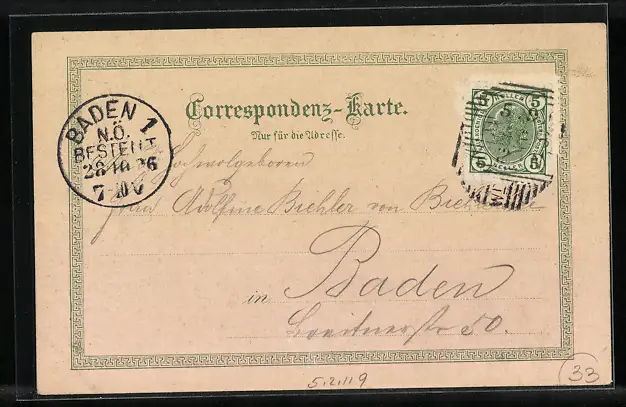 Correspondenz-Karte.
Nur für die Adresse.
BADEN 1
N.Ö.
BESTELLT
28 10 06
7-10V
5 HELLER 5
5 5
Hochwolgeboren
Frau Adolfine Bichler von
in Baden
Breitnerstr 50.
5.2.119
33